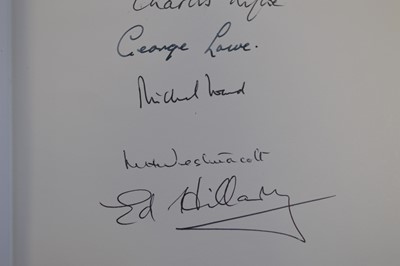 Charles Wylie
George Lowe.
Michael Ward
MH Westmacott
Ed Hillary